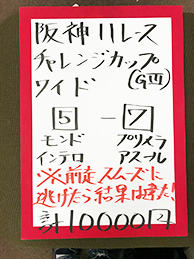 阪神11レース
チャレンジカップ
(GⅢ)
ワイド
5 - 7
モンド プリメラ
インテロ アスール
※前走スムーズに
逃げたら結果は違った!
計10000円